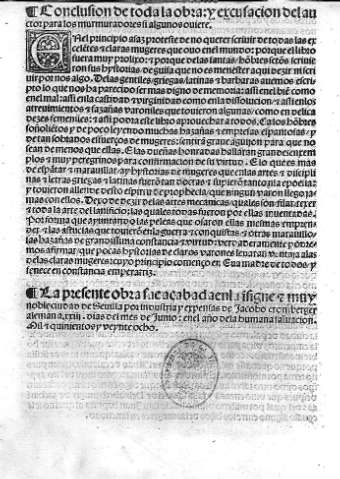 ¶ Conclusion de toda la obra: y excusacion del au
ctor para los murmuradores si algunos ouiere.
EN el principio assaz proteste de no querer escriuir de todas las ex
celẽtes e claras mugeres que ouo en el mundo: porque el libro
fuera muy prolixo: e porque de las sanctas / hõbres sctõs escriuie
ron sus hystorias / de guisa que no es menester aqui de ser
por nos algo. De las gentiles / griegas / latinas e barbaras auemos escri
pto lo que nos ha parecido ser mas digno de memoria: assi en el biẽ como
en el mal: assi en la castidad e virginidad como en la dissolucion: e assi en los
atreuimientos e hazañas varoniles que touieron algunas / como en delica
dezes femeniles: assi podra este libro aprouechar a todos. Ca los hõbres
soñolietos y de poco leyendo muchas hazañas e empresas espantosas / y
de tan sobrados esfuerços de mugeres: sentirã graue aguijon para que no
sean de menos que ellas. E las dueñas honradas hallaran grandes exem
plos e muy peregrinos para confirmacion de su virtud. E lo que es mas
de espãtar e marauillar ay hystorias de mugeres que en las artes e disciplí
nas e letras griegas e latinas fuerõ tan doctas y supierõ tanto en la
y touieron allende desso espiritu de prophecia que ningun varon llego ja
mas con ellos. Dexo de dezir de las artes mecanicas / quales son filar texer
e toda la arte del lanificio: las quales todas fueron por ellas inuentadas.
Por forma que ayuntando las peleas que osaron ellas mesmas empren
der e las astucias que touierõ en la guerra e conquistas e otras
las hazañas de grandissima constancia e virtud: verdaderamente podre
mos affirmar que pocas hystorias de claros varones leuaran ventaja alas
delas claras mugeres cuyo principio començo en Eua madre de todos / y
fenece en constancia emperatriz.
¶ La presente obra fue acabada en la insigne e muy
noble ciudad de Seuilla por industria y expensas de Jacobo cronberger
aleman a .xxiij. dias del mes de Junio: en el año dela humana saluacion.
Mil e quinientos y veynte ocho.